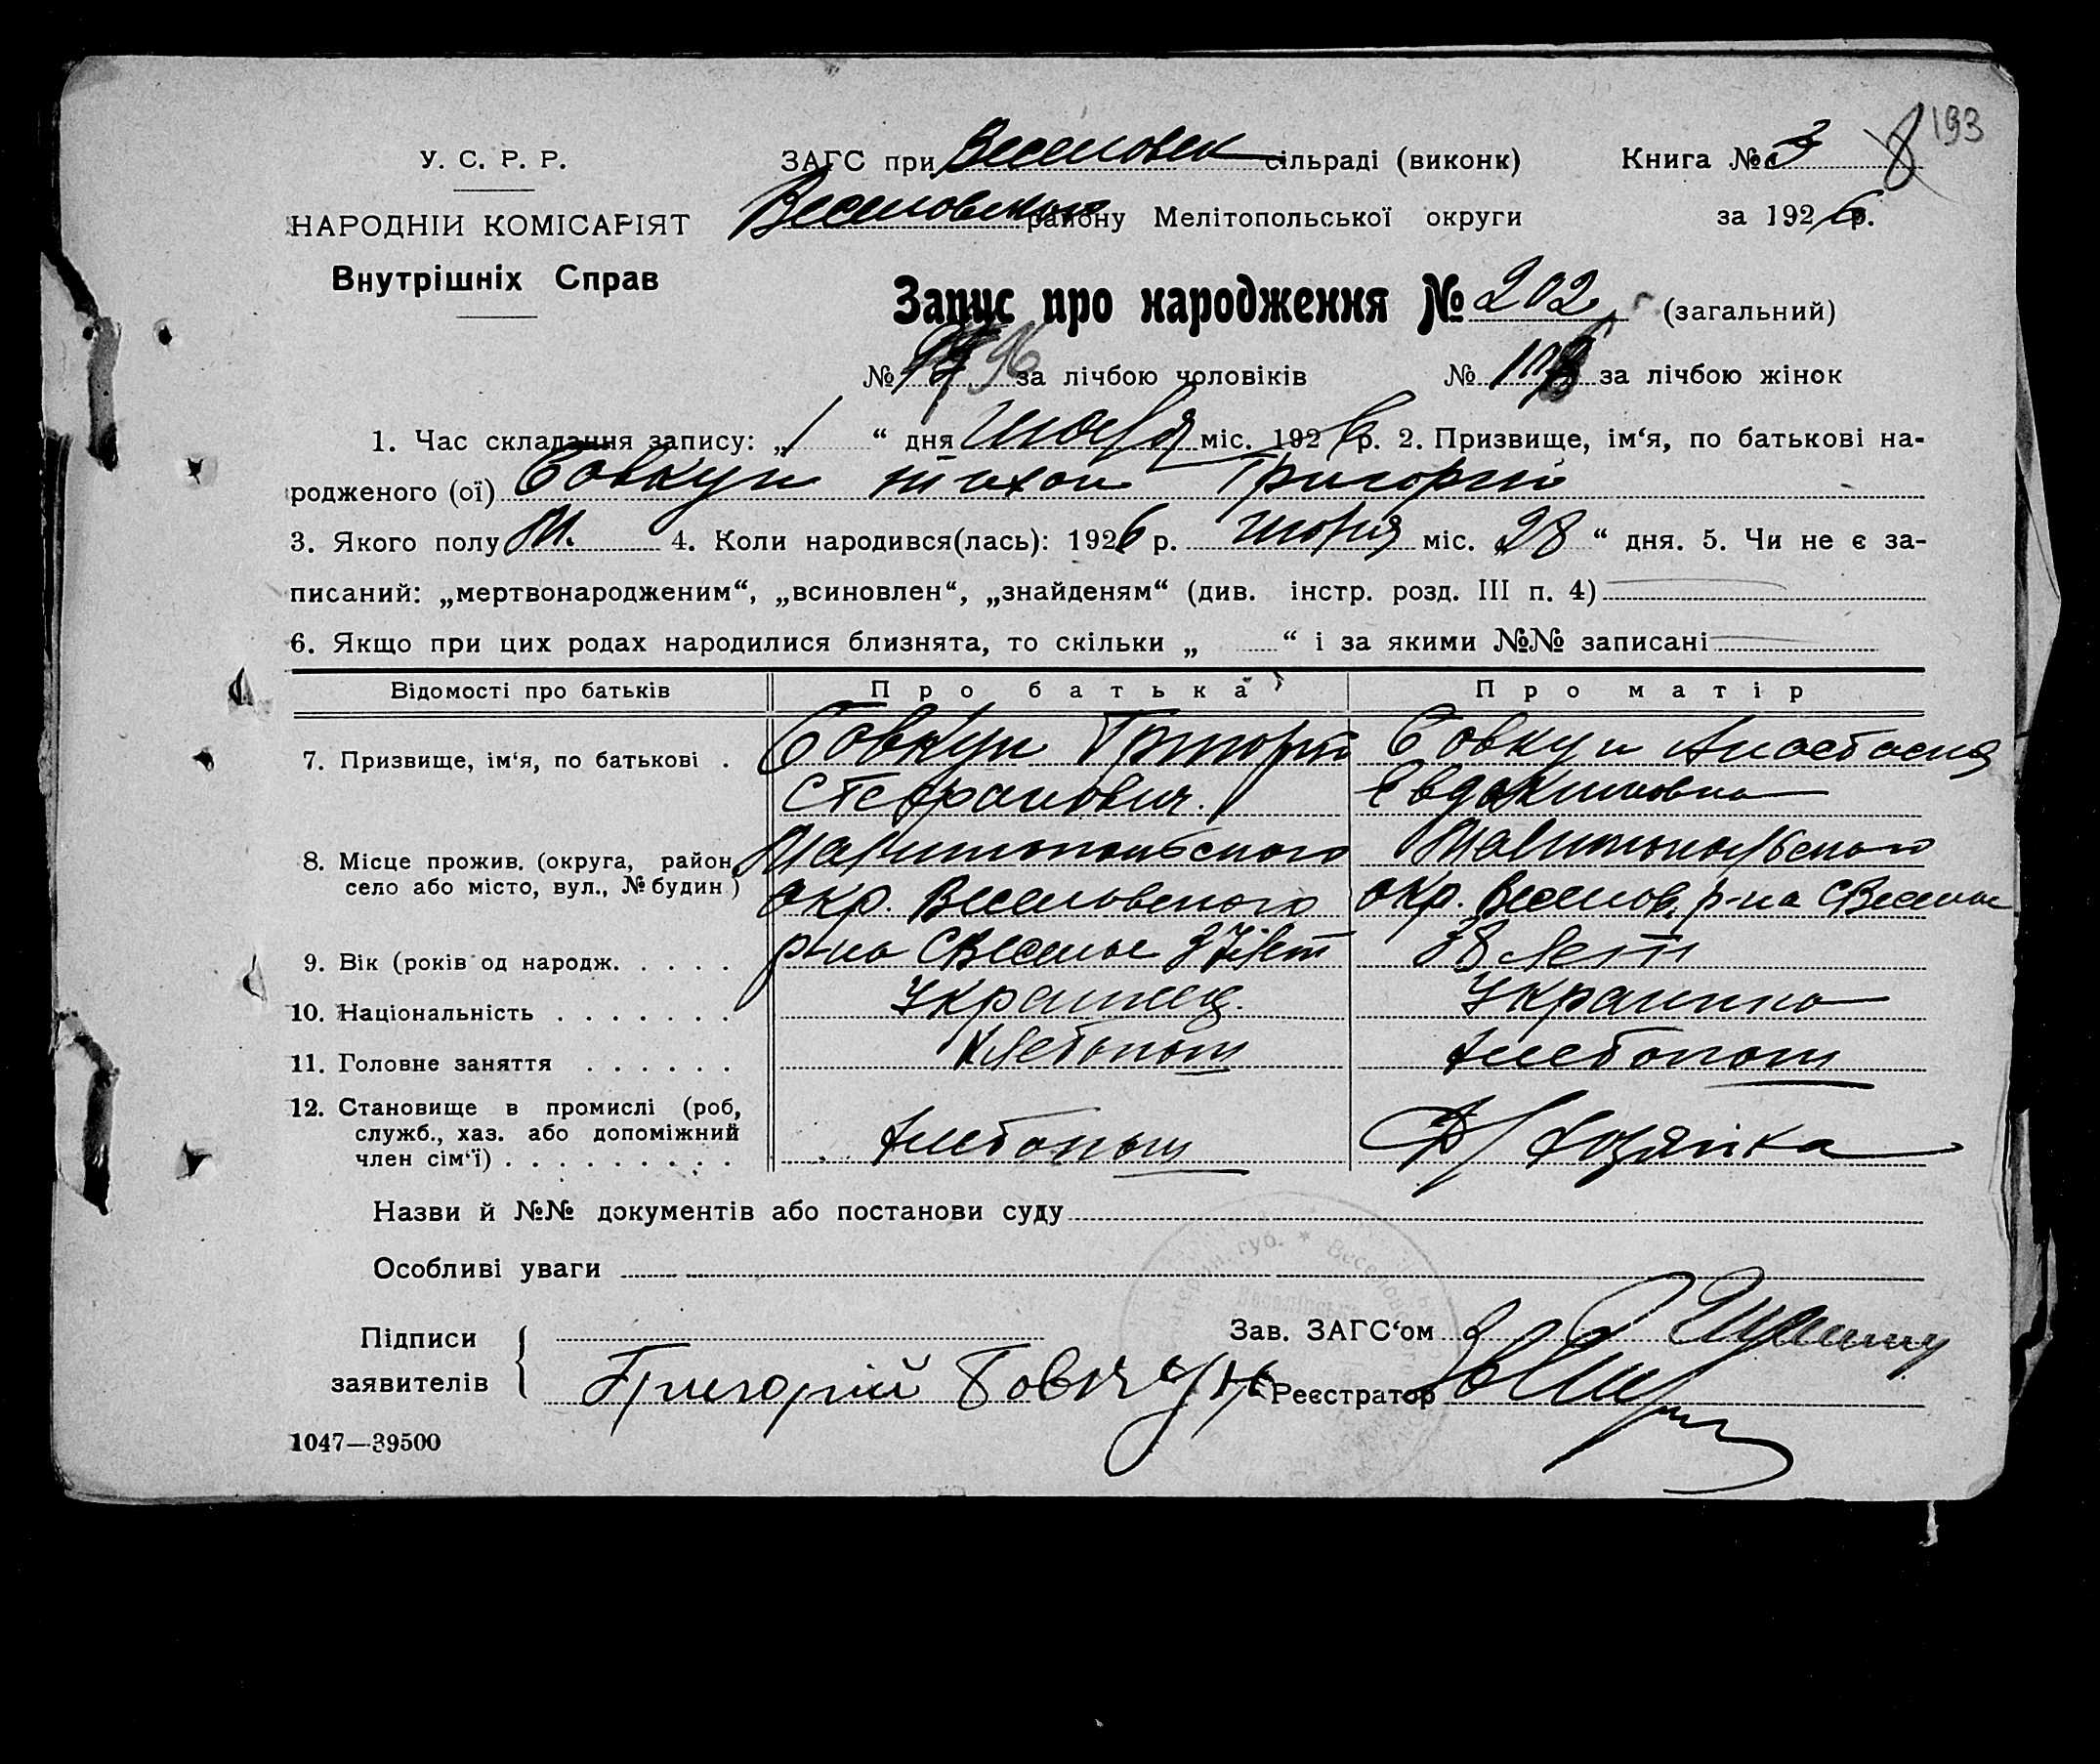 193
У. С. Р. Р.
ЗАГС при Веселовск сільраді (виконк)
Книга № 3
НАРОДНІЙ КОМІСАРІЯТ
Веселовского району Мелітопольської округи
за 1926 р.
Внутрішніх Справ
Запис про народження № 202 (загальний)
№ 96 за лічбою чоловіків № за лічбою жінок
1. Час складання запису: „1 “ дня июля міс. 1926 р. 2. Призвище, ім‘я, по батькові на-
родженого (ої) Совкун Тихон Григорий
3. Якого полу М. 4. Коли народився(лась): 1926 р. июня міс. 28 “ дня. 5. Чи не є за-
писаний: „мертвонародженим“, „всиновлен“, „знайденям“ (див. інстр. розд. III п. 4)
6. Якщо при цих родах народилися близнята, то скільки „ “ і за якими №№ записані
Відомості про батьків Про батька Про матір
7. Призвище, ім‘я, по батькові . Совкун Григорий Совкун Анастасия
Стефанович. Евдокимовна
8. Місце прожив. (округа, район, Мелитопольского Мелитопольского
село або місто, вул., № будин) окр. Веселовского окр. Веселов. р-на С Веселое
9. Вік (років од народж. . . . . р-на С Веселое 37 лет 38 лет
10. Національність . . . . . . . Украинец. Украинка
11. Головне заняття . . . . . . Хлебопаш Хлебопаш
12. Становище в промислі (роб,
служб., хаз. або допоміжний
член сім‘ї) . . . . . . . . . Хлебопаш Д/Хозяйка
Назви й №№ документів або постанови суду
Особливі уваги
Підписи
Зав. ЗАГС‘ом
заявителів Григорій Совкун
Реєстратор
1047—39500